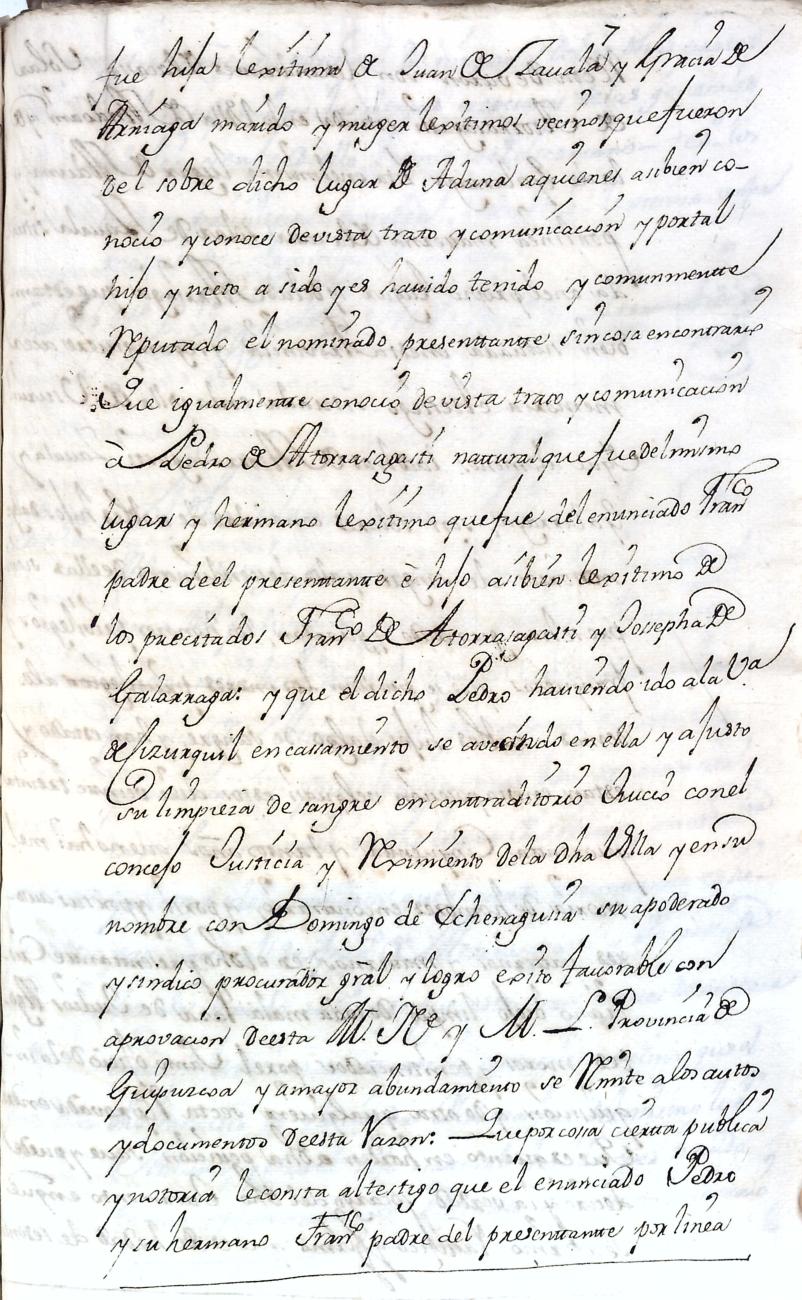 fue hija lexitima de Juan de Zavala y Gracia de
Arriaga marido y muger lexitimos vecinos que fueron
del sobre dicho lugar de Aduna a quienes asibien co-
nocio y conoce de vista trato y comunicacion y por tal
hijo y nieto a sido y es havido tenido y comunmentte
Reputado el nominado presenttantte sin cosa en contrario
Que igualmentte conocio de vista trato y comunicacion
à Pedro de Atorrasagasti natural que fue del mismo
lugar y hermano lexitimo que fue del enunciado Franco
padre de el presenttantte è hijo asibien lexitimo de
los precitados Franco de Atorrasagasti y Josepha de
Galarraga: y que el dicho Pedro haviendo ido a la Va
de Cizurquil en casamiento se avecindo en ella y ajusto
su limpieza de sangre en conttraditorio Juicio con el
concejo Justicia y Reximiento de la dha Villa y en su
nombre con Domingo de Echenagusia su apoderado
y sindico procurador gral y logro exito favorable con
aprovacion de esta M. Ne y M. L. Provincia de
Guipuzcoa y a mayor abundamiento se Rmte a los autos
y documentos de esta Razon: Que por cosa cierta publica
y notoria le consta al testigo que el enunciado Pedro
y su hermano Franco padre del presenttantte por linea